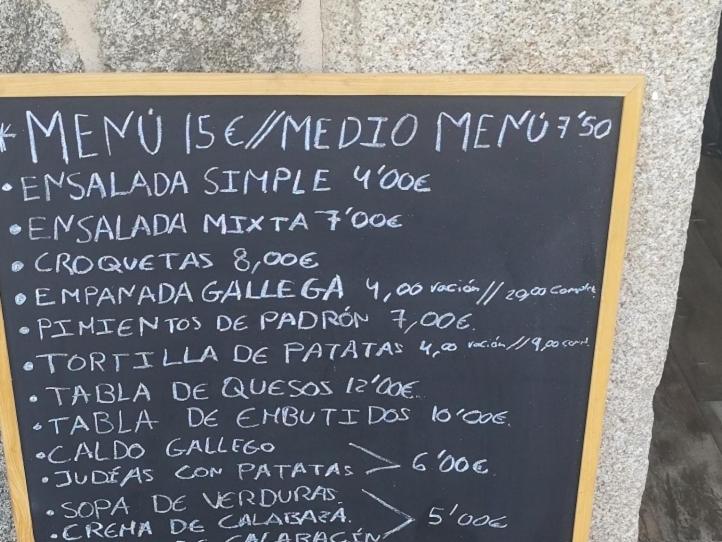 *MENÚ 15€//MEDIO MENÚ 7'50
•ENSALADA SIMPLE 4'00€
•ENSALADA MIXTA 7'00€
•CROQUETAS 8,00€
•EMPANADA GALLEGA 4,00 ración // 20,00
•PIMIENTOS DE PADRÓN 7,00€.
•TORTILLA DE PATATAS 4,00 ración // 9,00
•TABLA DE QUESOS 12'00€.
•TABLA DE EMBUTIDOS 10'00€.
•CALDO GALLEGO
•JUDÍAS CON PATATAS > 6'00€.
•SOPA DE VERDURAS.
•CREMA DE CALABAZA. > 5'00€
DE CALABACÍN